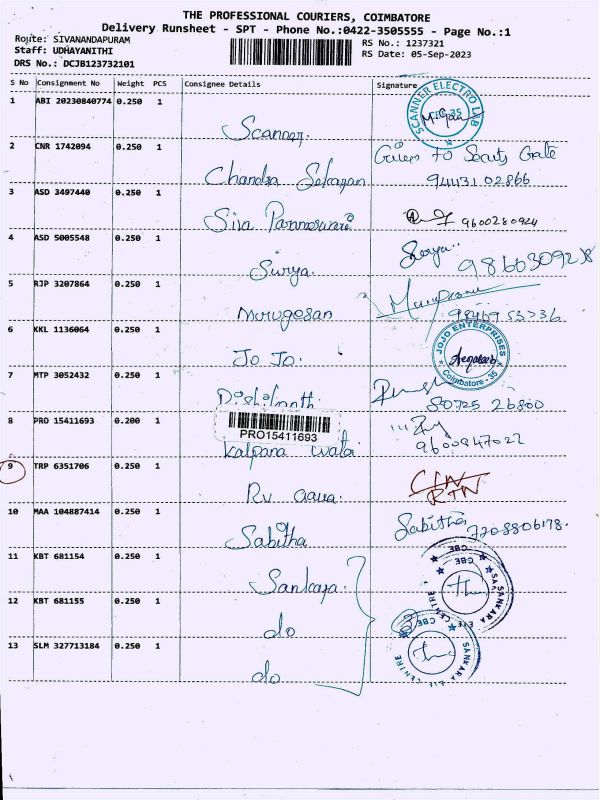 THE PROFESSIONAL COURIERS, COIMBATORE
Delivery Runsheet - SPT - Phone No.:0422-3505555 - Page No.:1
Route: SIVANANDAPURAM
Staff: UDHAYANITHI
DRS No.: DCJB123732101
RS No.: 1237321
RS Date: 05-Sep-2023
S No Consignment No Weight PCS Consignee Details Signature
1 ABI 20230840774 0.250 1 Scanner. SCANNER ELECTRO LAB
2 CNR 1742094 0.250 1 Chandra Given to Gate
94431 02866
3 ASD 3497440 0.250 1 Siva 9600280924
4 ASD 5005548 0.250 1 Surya. Surya..
5 RJP 3207864 0.250 1 Murugesan
6 KKL 1136064 0.250 1 Jo Jo. JOJO ENTERPRISES Coimbatore - 35
7 MTP 3052432 0.250 1 80725 26800
8 PRO 15411693 0.200 1 Kalpana 9600847022
PRO15411693
9 TRP 6351706 0.250 1 Rv RTN
10 MAA 104887414 0.250 1 Sabitha Sabitha 7208806178.
11 KBT 681154 0.250 1 Sankara. SANKARA EYE CENTRE CBE
12 KBT 681155 0.250 1 do
13 SLM 327713184 0.250 1 do SANKARA CENTRE CBE